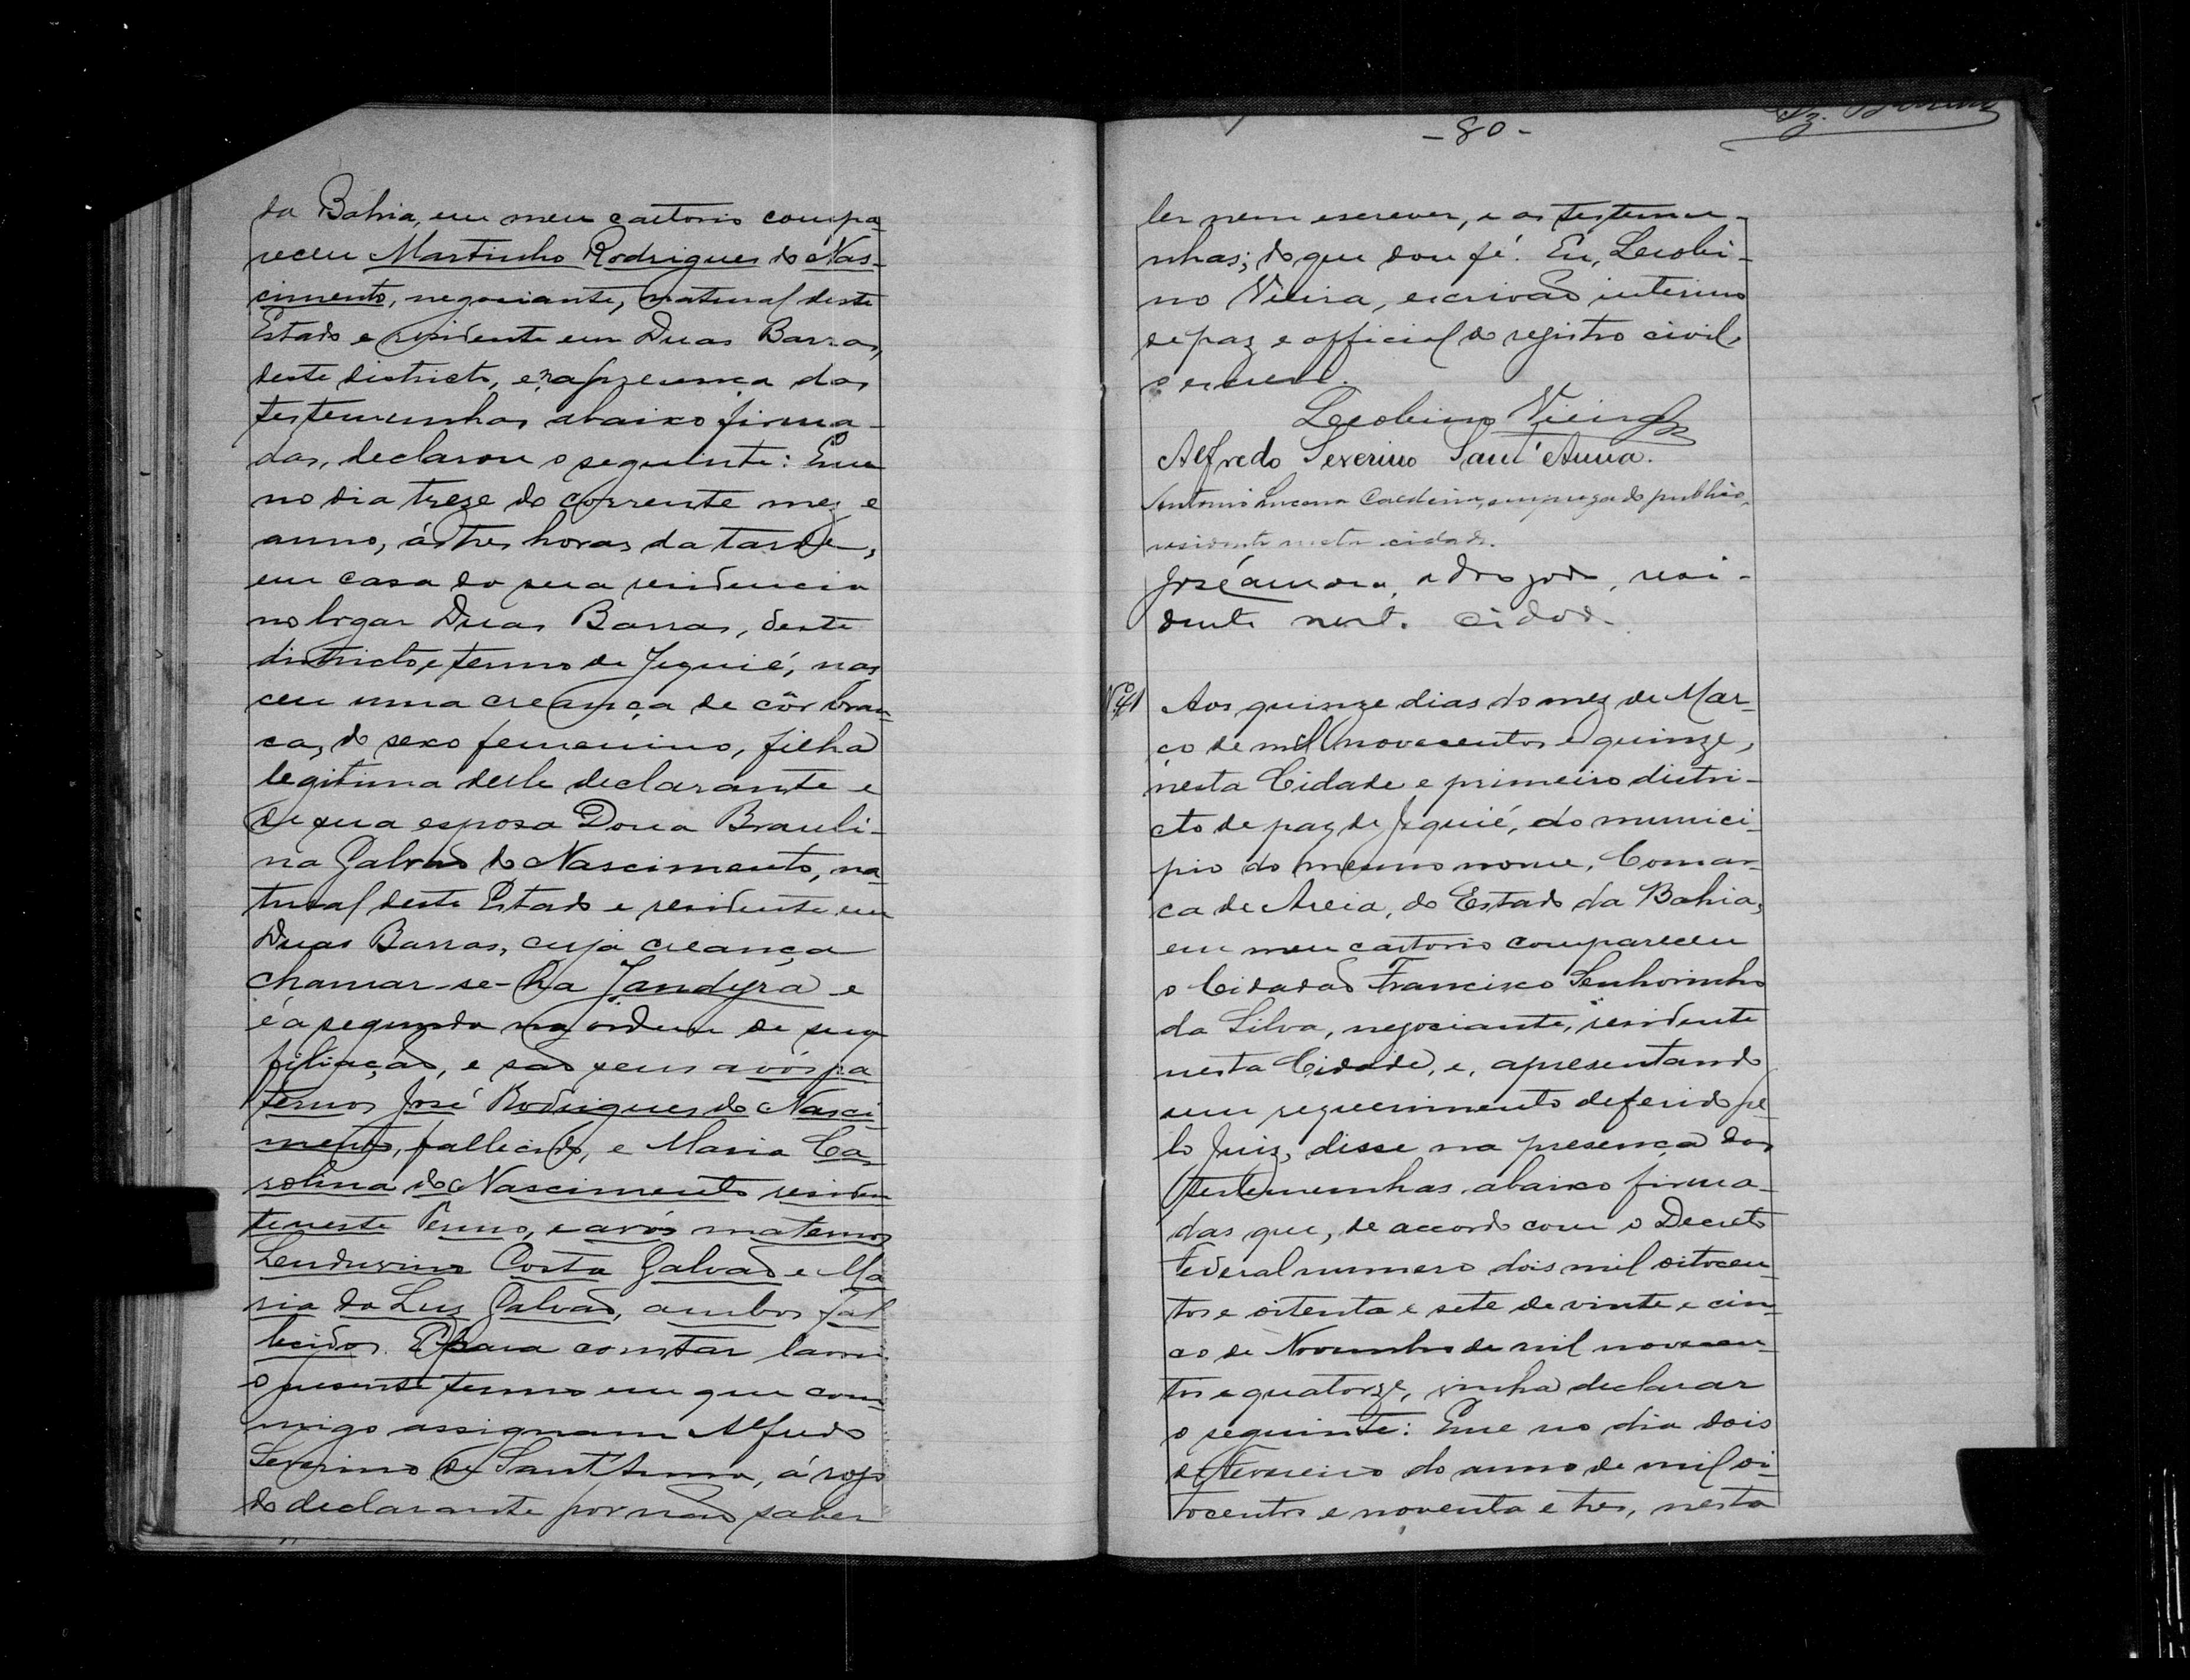 da Bahia, em meu cartorio compa-
receu Martinho Rodrigues do Nas-
cimento, negociante, natural deste
Estado e residente em Duas Barras,
deste districto, e na presença das
testemunhas abaixo firma-
das, declarou o seguinte: Que
no dia treze do corrente mez e
anno, ás tres horas da tarde,
em casa da sua residencia
no logar Duas Barras, deste
districto, e termo de Jequié, nas
ceu uma creança de côr bran-
ca, do sexo femenino, filha
legitima delle declarante e
de sua esposa Dona Brauli-
na Galvão do Nascimento, na-
tural deste Estado e residente em
Duas Barras, cuja creança
chamar-se-ha Jandyra e
é a segunda na ordem de sua
filiação, e são seus avós pa
ternos José Rodrigues do Nasci
mento, fallecido, e Maria Ca-
rolina do Nascimento residen
te neste Termo, e avós maternos
Costa Galvão e Ma
ria da Luz Galvão, ambos fal
lecidos. E para constar lavrei
o presente termo em que com-
migo assignam Alfredo
Severino de Sant'Anna, á rogo
do declarante por não saber
- 80 -
ler nem escrever, e as testemu-
nhas; do que dou fé. Eu, Leobi-
no Vieira, escrivão interino
de paz e official do registro civil,
o escrevi.
Leobino Vieira
Alfredo Severino Sant'Anna.
Antonio Lucena empregado publico,
residente nesta cidade.
José advogado, resi-
dente nest. cidade
Nº 41 Aos quinze dias do mez de Mar-
ço de mil novecentos e quinze,
nesta Cidade e primeiro distri-
cto de paz de Jequié, do munici-
pio do mesmo nome, Comar-
ca de Areia, do Estado da Bahia,
em meu cartorio compareceu
o Cidadão Francisco Senhorinho
da Silva, negociante, residente
nesta Cidade, e, apresentando
um requerimento deferido pe-
lo Juiz, disse na presença das
testemunhas abaixo firma-
das que, de accordo com o Decreto
Federal numero dois mil oitocen-
tos e oitenta e sete de vinte e cin-
co de Novembro de mil novecen-
tos e quatorze, vinha declarar
o seguinte: Que no dia dois
de Fevereiro do anno de mil oi-
tocentos e noventa e tres, nesta